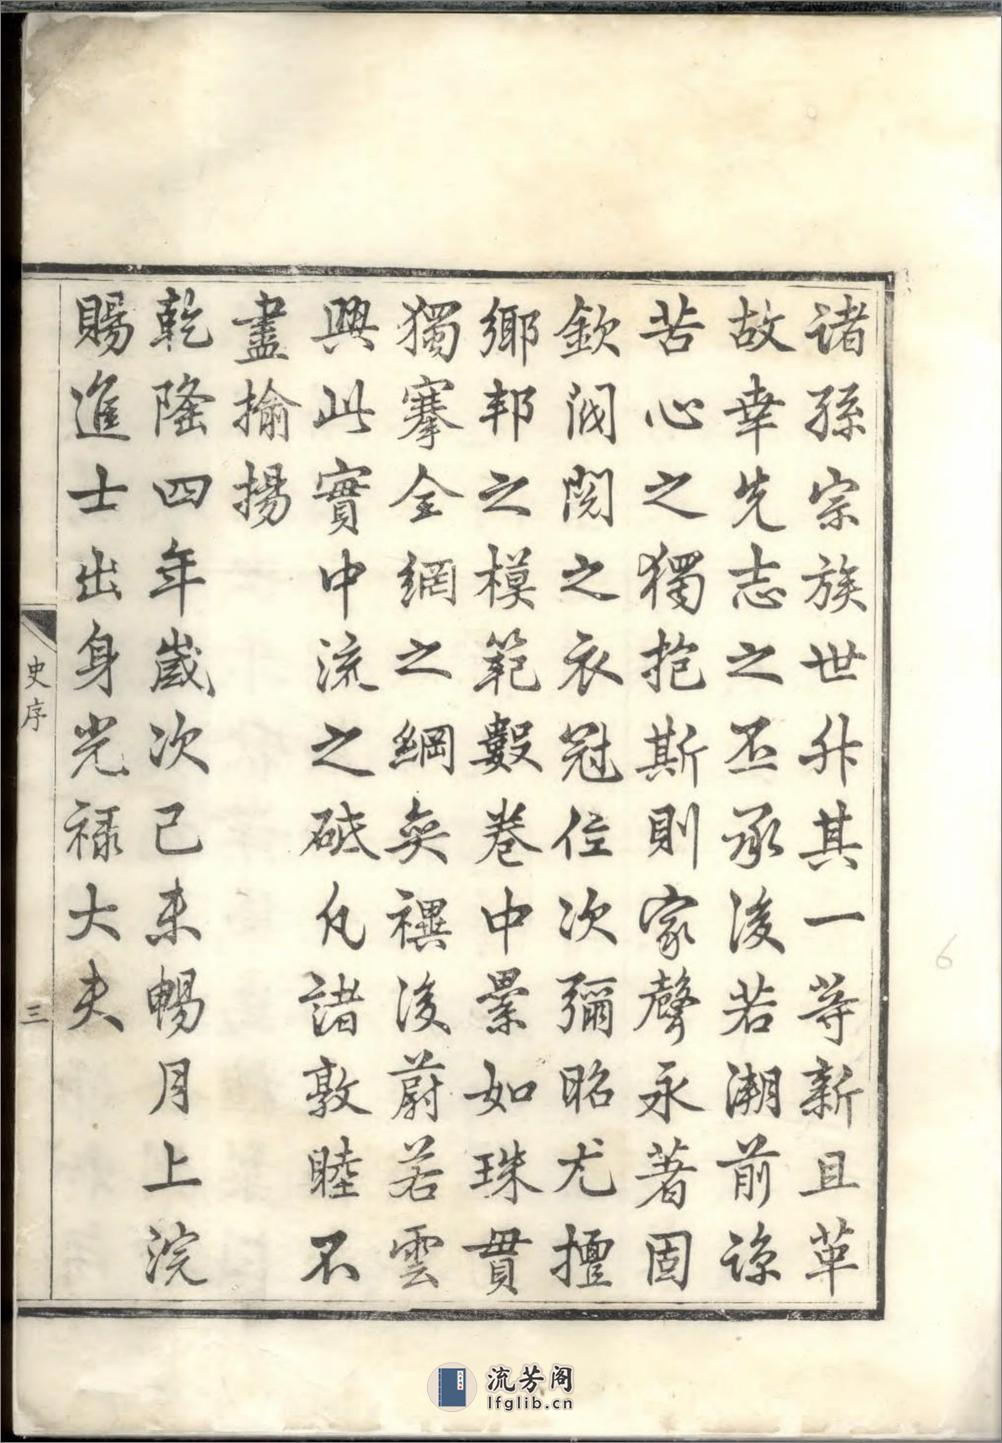 诸孫宗族世升其一等新且革
故幸先志之丕承後若潮前諒
苦心之獨抱斯則家聲永著固
欽閥閱之衣冠位次彌昭尤擅
鄉邦之模範數卷中纍如珠貫
獨搴全綱之綱奕禩後蔚若雲
興此實中流之砥凡諸敦睦不
盡揄揚
乾隆四年歲次己未暢月上浣
賜進士出身光禄大夫
史序
三
6
流芳阁
lfglib.cn